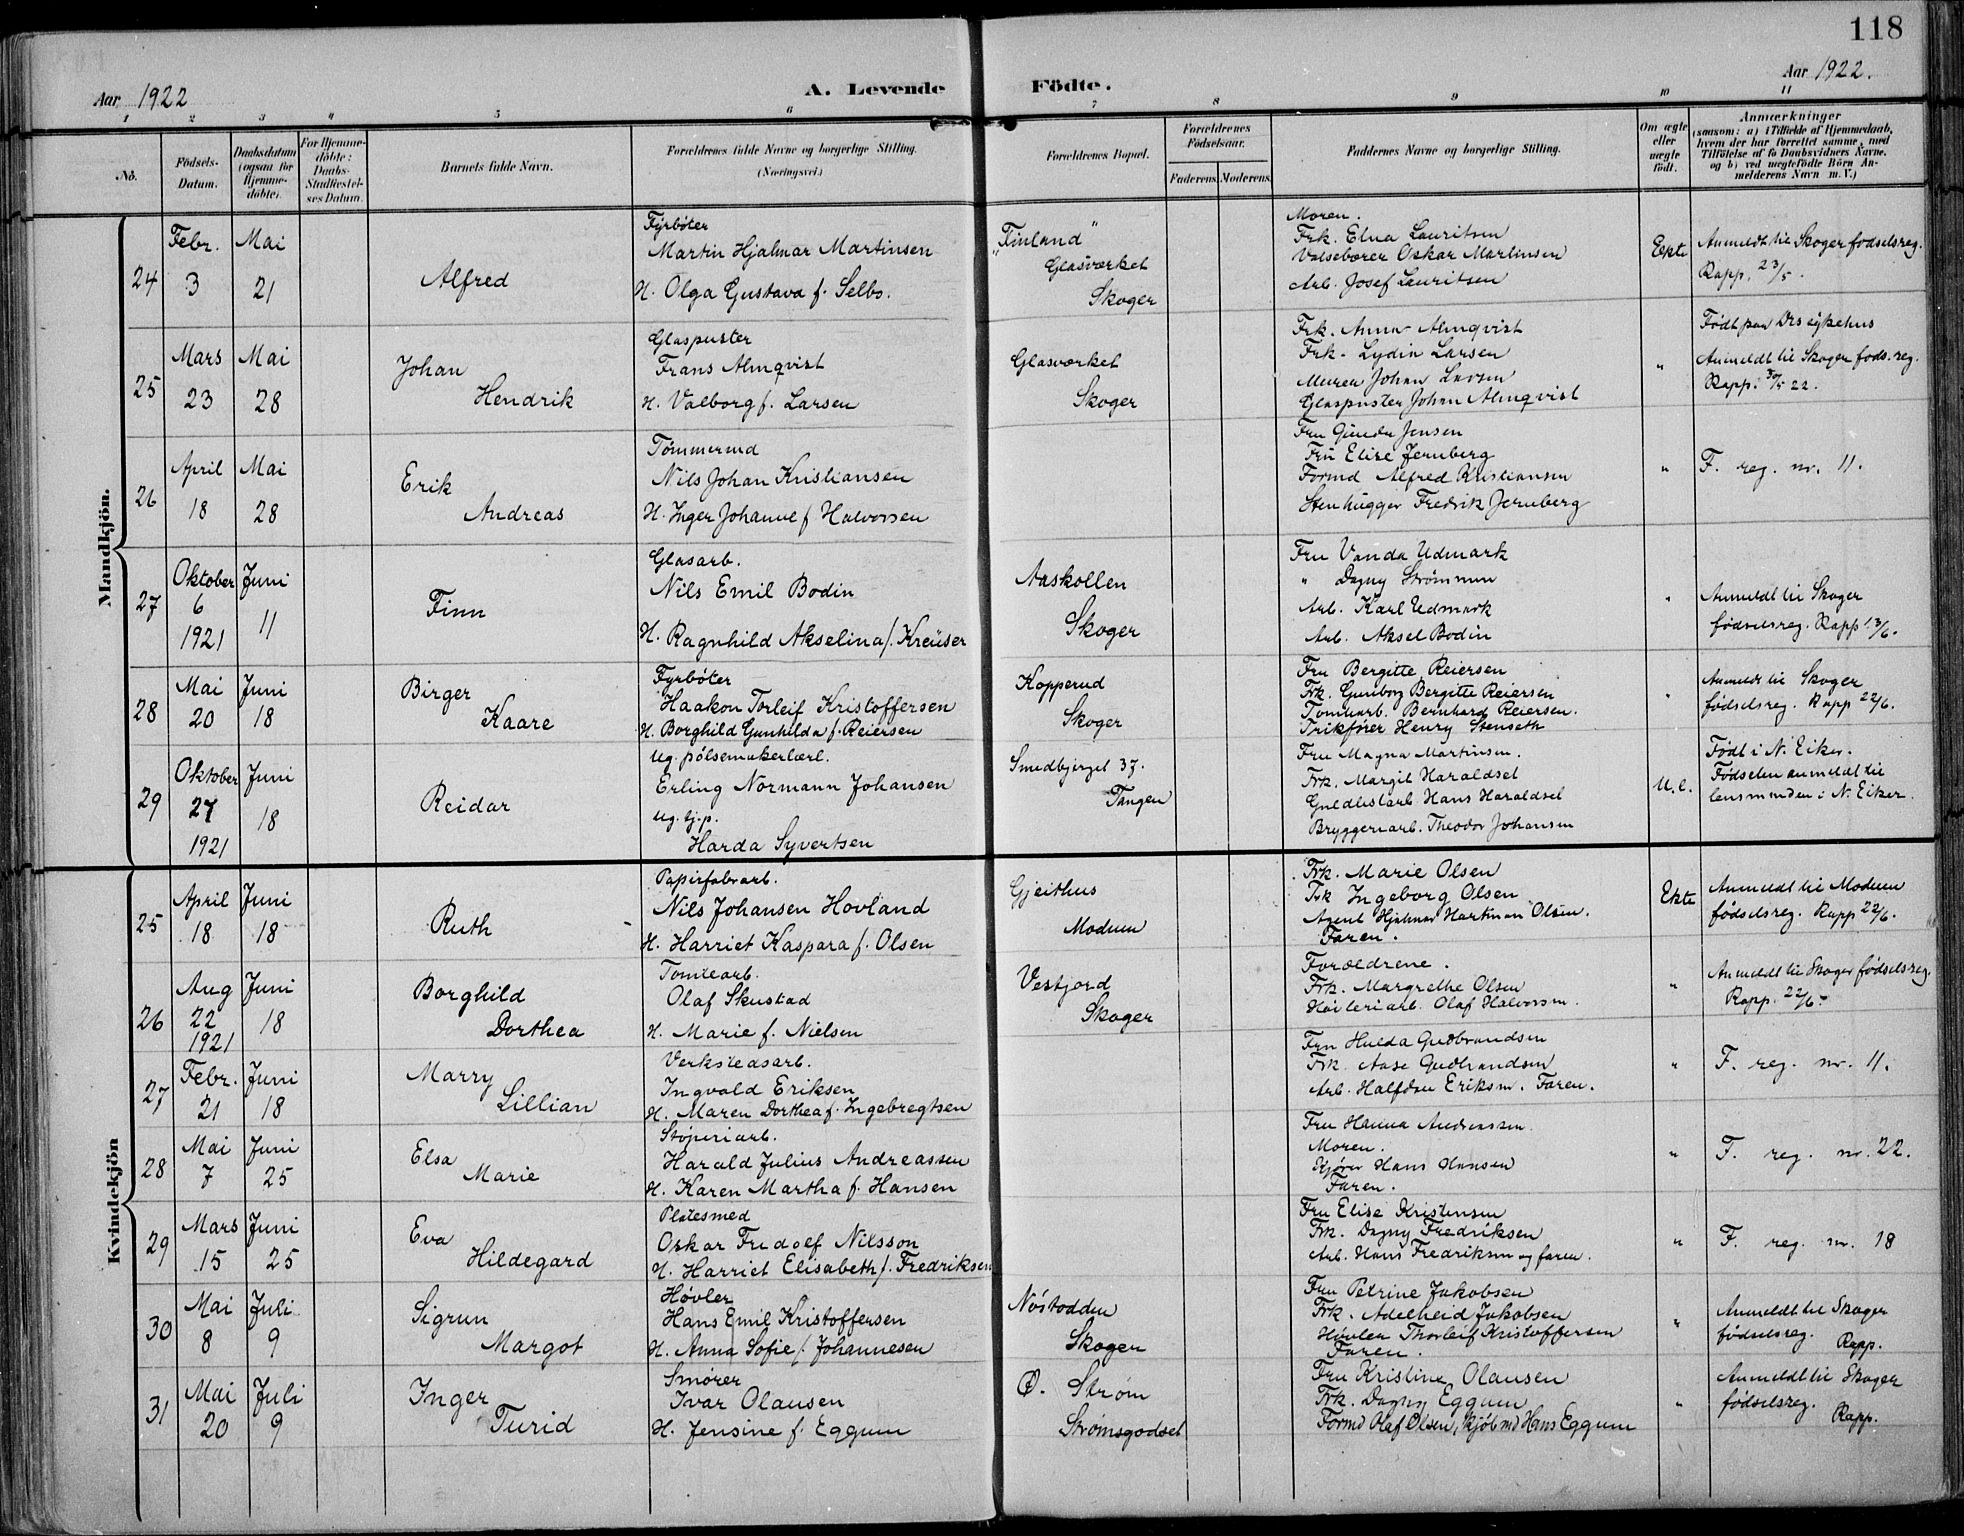 118
Aar 1922
A. Levende
Födte.
Aar 1922.
1 2 3 4 5 6 7 8 9 10 11
No.
Födsels-
Datum.
Daabsdatum
(ogsaa for
Hjemme-
döbte).
For Hjemme-
döbte:
Daabs-
Stadfæstel-
ses Datum.
Barnets fulde Navn.
Forældrenes fulde Navne og borgerlige Stilling.
(Næringsvei.)
Forældrenes Bopæl.
Forældrenes
Fødselsaar.
Faderens. Moderens.
Faddernes Navne og borgerlige Stilling.
Om ægte
eller
uægte
født.
Anmærkninger
(saasom: a) i Tilfælde af Hjemmedaab,
hvem der har forrettet samme, med
Tilföielse af to Daabsvidners Navne,
og b) ved uægtefödte Börn An-
melderens Navn m. V.)
Mandkjön.
24
Febr.
3
Mai
21
Alfred
Fyrbøter
Martin Hjalmar Martinsen
H. Olga Gustava f. Selbo.
"Finland"
Glasværket
Skoger
Moren.
Frk. Elna Lauritsen
Valsebærer Oskar Martinsen
Arb. Josef Lauritsen
Ekte
Anmeldt til Skoger fødselsreg.
Rapp. 23/5.
25
Mars
23
Mai
28
Johan
Hendrik
Glaspuster
Frans Almqvist
H. Valborg f. Larsen
Glasværket
Skoger
Frk. Anna Almqvist
Frk. Lydia Larsen
Murer Johan Larsen
Glaspuster Johan Almqvist
"
Født paa Drs sykehus
Anmeldt til Skoger føds. reg.
Rapp. 30/5 22.
26
April
18
Mai
28
Erik
Andreas
Tømmermd
Nils Johan Kristiansen
H. Inger Johanne f Halvorsen
Fru Gunda Jensen
Fru Elise Jernberg
Formd Alfred Kristiansen
Stenhugger Fredrik Jernberg
"
F. reg. nr. 11.
27
Oktober
6
1921
Juni
11
Finn
Glasarb.
Nils Emil Bodin
H. Ragnhild Akselina f. Kreüser
Aaskollen
Skoger
Fru Vanda Udmark
" Dagny Strømmen
Arb. Karl Udmark
Arb. Aksel Bodin
"
Anmeldt til Skoger
fødselsreg. Rapp 13/6.
28
Mai
20
Juni
18
Birger
Kaare
Fyrbøter
Haakon Torleif Kristoffersen
H. Borghild Gunhilda f. Reiersen
Kopperud
Skoger
Fru Bergitte Reiersen
Frk. Gunborg Bergitte Reiersen
Tomtearb. Bernhard Reiersen.
Trikfører Henry Stenseth
"
Anmeldt til Skoger
fødselsreg. Rapp 22/6.
29
Oktober
27
1921
Juni
18
Reidar
Ug. pølsemakerlærl.
Erling Normann Johansen
Ug. tj.p.
Harda Syvertsen
Smedbjerget 37.
Tangen
Fru Magna Martinsen.
Frk. Margit Haraldset
Guldlistarb Hans Haraldset
Bryggeriarb. Theodor Johansen
U.e.
Født i N. Eiker.
Fødselen anmeldt til
lensmanden i N. Eiker.
Kvindekjön
25
April
18
Juni
18
Ruth
Papirfabrarb.
Nils Johansen Hovland
H. Harriet Kaspara f. Olsen
Gjeithus
Modum
Frk. Marie Olsen
Frk Ingeborg Olsen
Agent Hjalmar Hartman Olsen.
Faren.
Ekte
Anmeldt til Modum
fødselsreg. Rapp 22/6.
26
Aug
22
1921
Juni
18
Borghild
Dorthea
Tomtearb.
Olaf Skustad
H. Marie f. Nielsen
Vestjord
Skoger
Forældrene.
Frk. Margrethe Olsen
Høvleriarb. Olaf Halvorsen.
"
Anmeldt til Skoger fødselsreg.
Rapp. 22/6
27
Febr.
21
Juni
18
Marry
Lillian
Verkstedsarb.
Ingvald Eriksen
H. Maren Dorthea f. Ingebregtsen
Fru Hulda Gudbrandsen
Frk. Aase Gudbrandsen
Arb. Halfdan Eriksen. Faren.
"
F. reg. nr. 11.
28
Mai
7
Juni
25
Elsa
Marie
Støperiarb.
Harald Julius Andreassen
H. Karen Martha f. Hansen
Fru Hanna Andreassen
Moren.
Kjører Hans Hansen
Faren.
"
F. reg. nr. 22.
29
Mars
15
Juni
25
Eva
Hildegard
Platesmed
Oskar Fridolf Nilsson
H. Harriet Elisabeth f. Fredriksen
Fru Elise Kristensen
Frk. Dagny Fredriksen
Arb. Hans Fredriksen og faren.
"
F. reg. nr. 18
30
Mai
8
Juli
9
Sigrun
Margot
Høvler
Hans Emil Kristoffersen
H. Anna Sofie f. Johannesen
Nøstodden
Skoger
Fru Petrine Jakobsen
Frk. Adelheid Jakobsen
Høvler Thorleif Kristoffersen
Faren.
"
Anmeldt til Skoger
fødselsreg. Rapp.
31
Mai
20
Juli
9
Inger
Turid
Smører
Ivar Olausen
H. Jensine f. Eggum
Ø. Strøm
Strømsgodset
Fru Kristine Olausen
Frk. Dagny Eggum
Formd Olaf Olsen, Kjøbmd Hans Eggum
"
Anmeldt til Skoger
fødselsreg. Rapp.